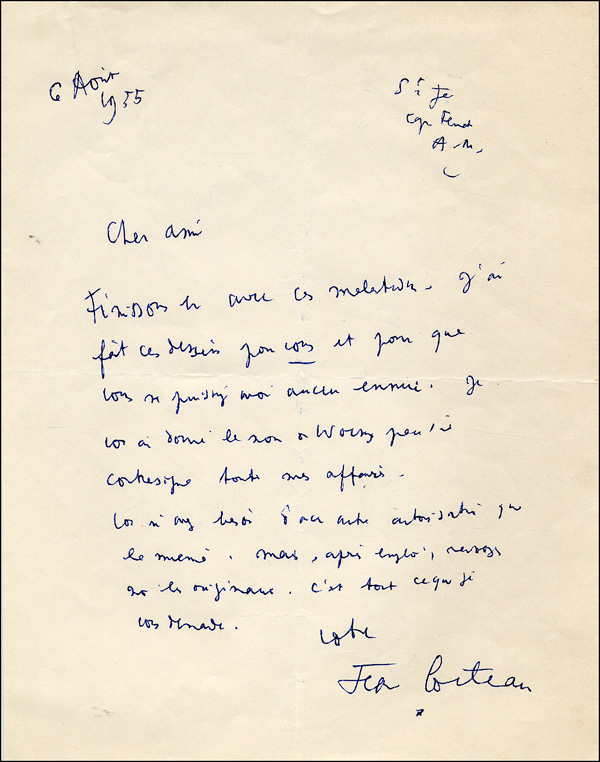 6 Août
1955
St Je
Cap Ferrat
A.M.
Cher ami
Finissons en avec ces . J'ai
fait ces dessins pour vous et pour que
vous ne puissiez avoir aucun ennui. Je
vous ai donné le nom de Worms
contresigne toute mes affaires.
Vous n'avez besoin d'aucune autre autorisation que
la mienne. Mais, après emploi, renvoyez
moi les originaux. C'est tout ce que je
vous demande.
votre
Jean Cocteau